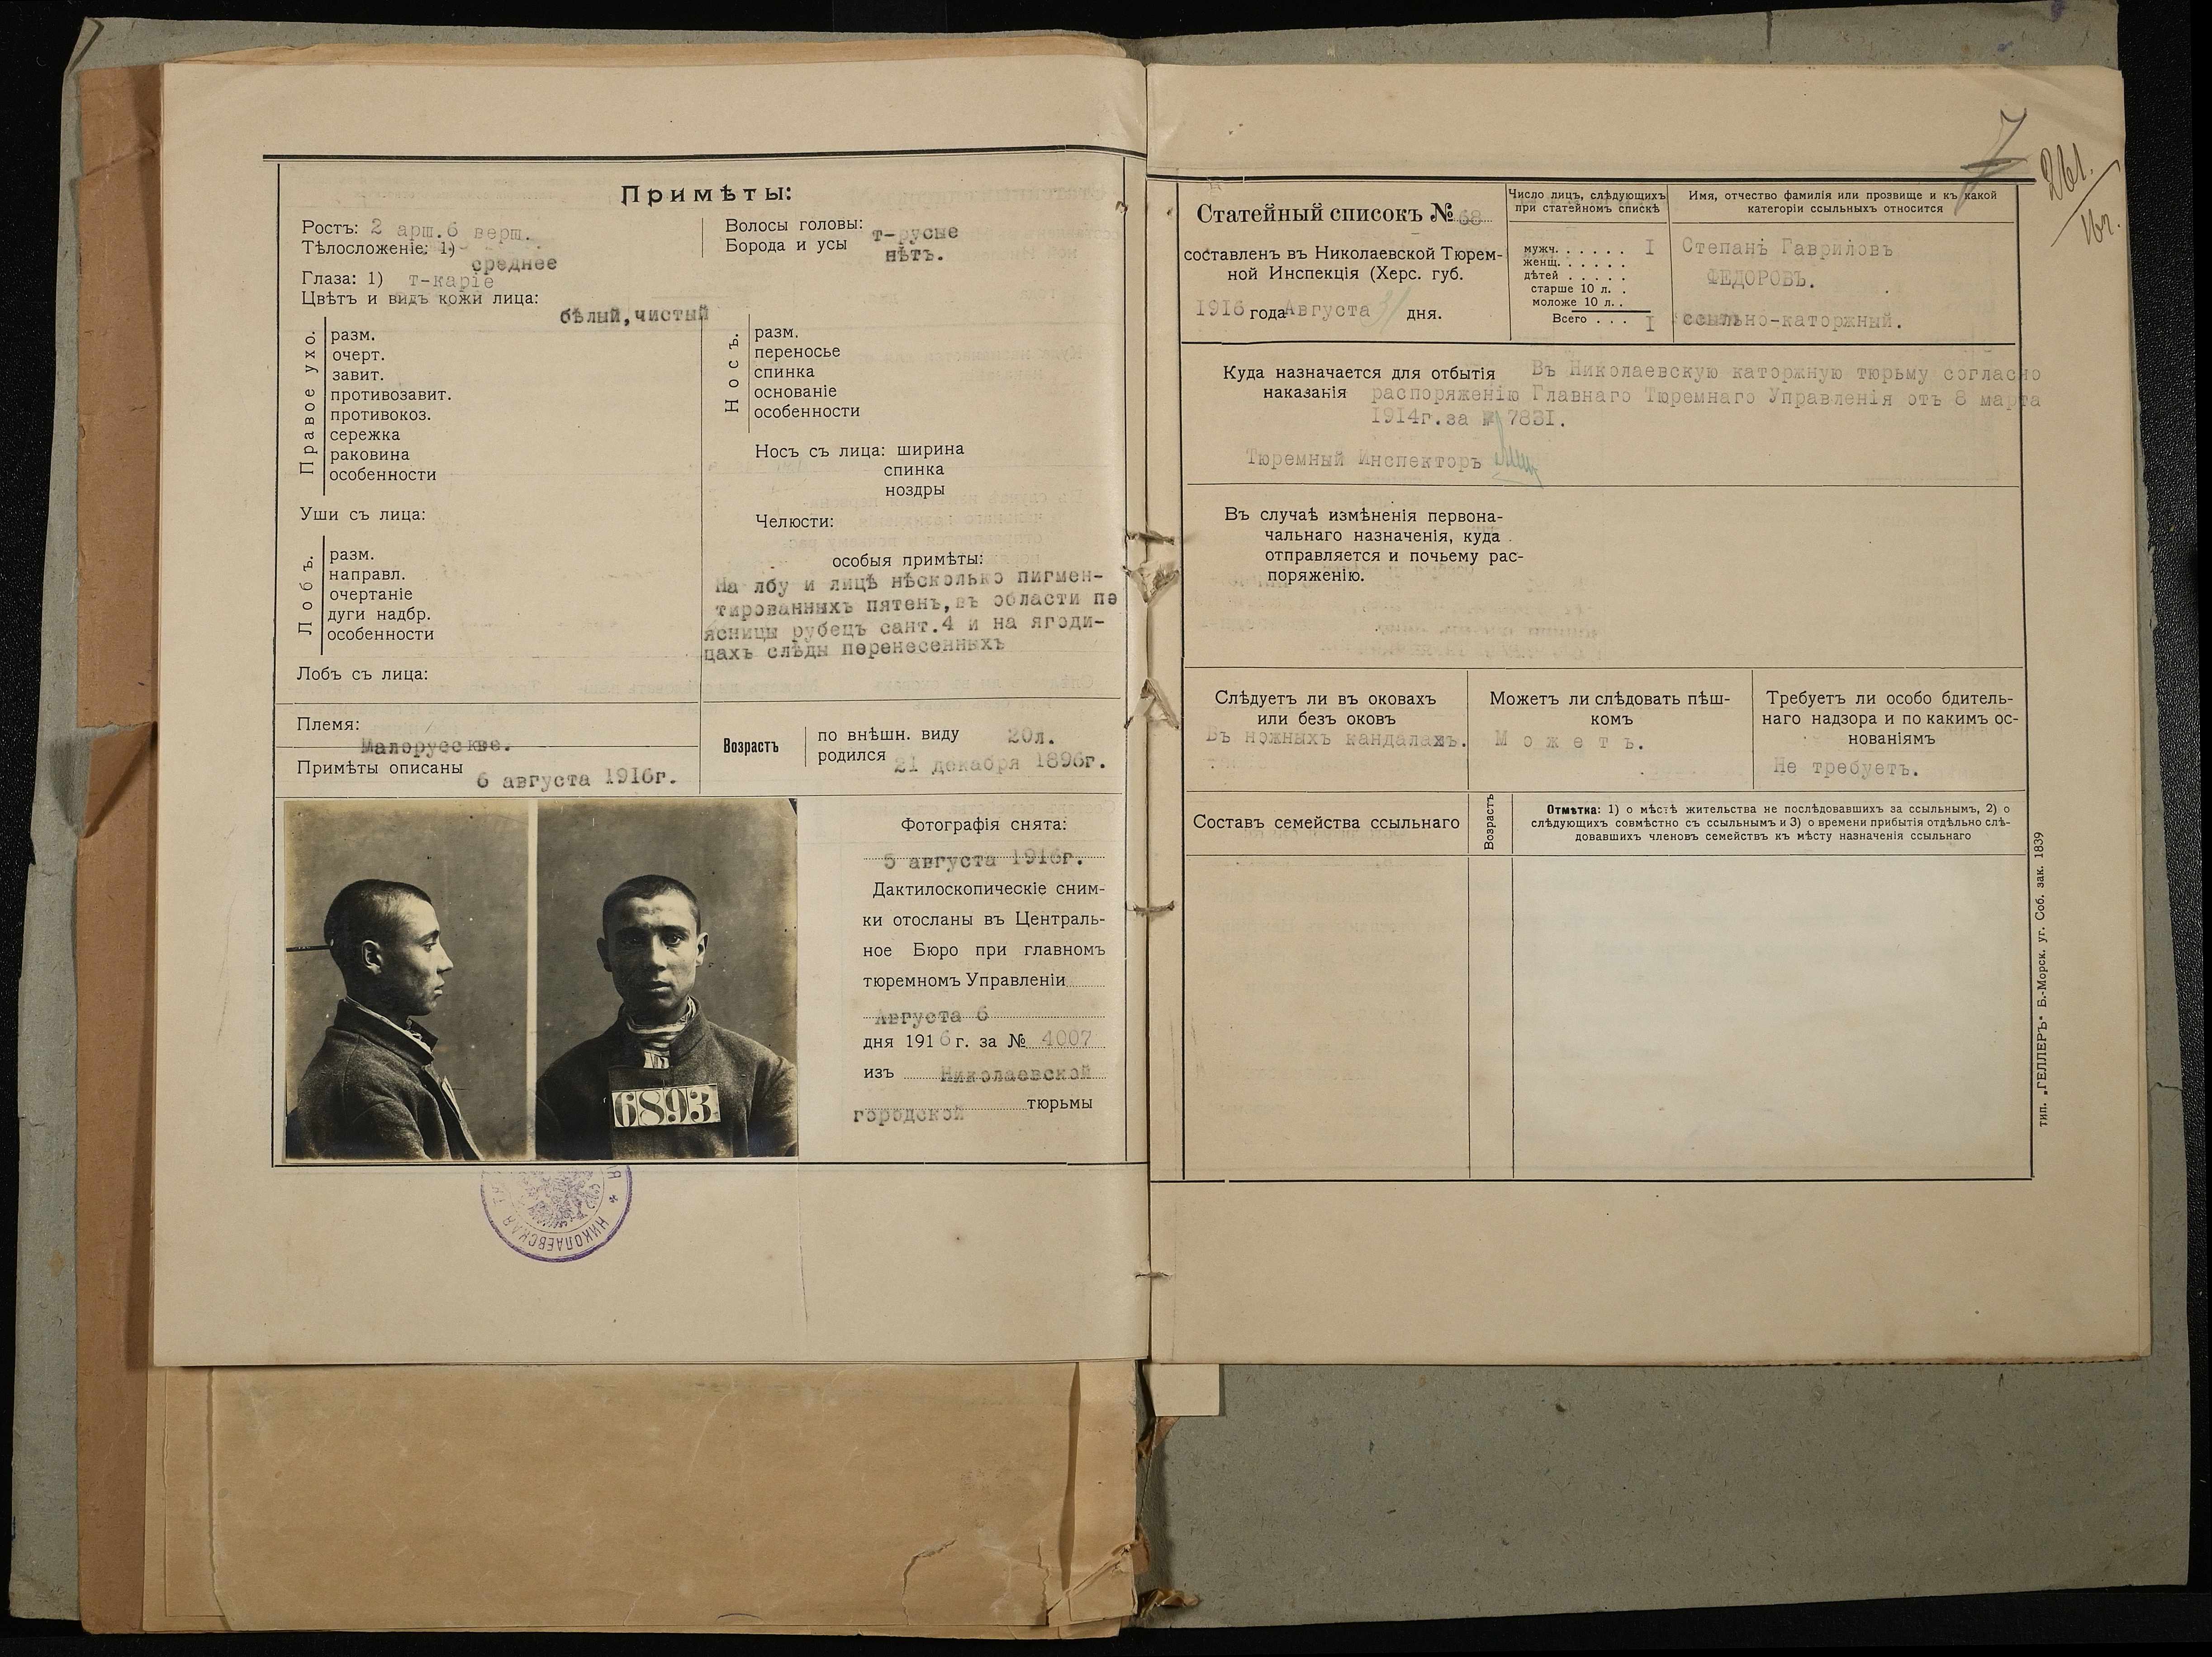 Примѣты:
Ростъ: 2 арш.6 верш.
Тѣлосложеніе: 1)
среднее
Глаза: 1) т-каріе
Цвѣтъ и видъ кожи лица:
бѣлый,чистый
Волосы головы:
т-русые
Борода и усы
нѣтъ.
Правое ухо.
разм.
очерт.
завит.
противозавит.
противокоз.
сережка
раковина
особенности
Носъ.
разм.
переносье
спинка
основаніе
особенности
Носъ съ лица: ширина
спинка
ноздры
Уши съ лица:
Челюсти:
Лобъ.
разм.
направл.
очертаніе
дуги надбр.
особенности
Лобъ съ лица:
особыя примѣты:
На лбу и лицѣ нѣсколько пигмен-
тированныхъ пятенъ,въ области по
ясницы рубецъ сант.4 и на ягоди-
цахъ слѣды перенесенныхъ
Племя:
Малорусское.
Примѣты описаны
6 августа 1916г.
Возрастъ
по внѣшн. виду 20л.
родился 21 декабря 1896г.
6893
Фотографія снята:
5 августа 1916г.
Дактилоскопическіе сним-
ки отосланы въ Централь-
ное Бюро при главномъ
тюремномъ Управленіи
Августа 6
дня 1916 г. за № 4007
изъ Николаевской
городской тюрьмы
НИКОЛАЕВСКАЯ
7
261.
Статейный списокъ № 68
составленъ въ Николаевской Тюрем-
ной Инспекція (Херс. губ.
1916 года Августа 31 дня.
Число лицъ, слѣдующихъ
при статейномъ спискѣ
мужч. . . . . . I
женщ. . . . . .
дѣтей . . . . .
старше 10 л. . .
моложе 10 л. . .
Всего . . . I
Имя, отчество фамилія или прозвище и къ какой
категоріи ссыльныхъ относится
Степанъ Гавриловъ
ФЕДОРОВЪ.
ссыльно-каторжный.
Куда назначается для отбытія
наказанія
Въ Николаевскую каторжную тюрьму согласно
распоряженію Главнаго Тюремнаго Управленія отъ 8 марта
1914г.за № 7831.
Тюремный Инспекторъ
Въ случаѣ измѣненія первона-
чальнаго назначенія, куда
отправляется и почьему рас-
поряженію.
Слѣдуетъ ли въ оковахъ
или безъ оковъ
Въ ножныхъ кандалахъ.
Можетъ ли слѣдовать пѣш-
комъ
Можетъ.
Требуетъ ли особо бдитель-
наго надзора и по какимъ ос-
нованіямъ
Не требуетъ.
Составъ семейства ссыльнаго
Возрастъ
Отмѣтка: 1) о мѣстѣ жительства не послѣдовавшихъ за ссыльнымъ, 2) о
слѣдующихъ совмѣстно съ ссыльнымъ и 3) о времени прибытія отдѣльно слѣ-
довавшихъ членовъ семействъ къ мѣсту назначенія ссыльнаго
тип. „ГЕЛЛЕРЪ" Б.-Морск. уг. Соб. зак. 1839